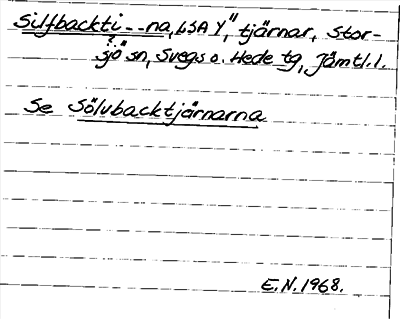 Silfbackti---na, LSA Y", tjärnar, Stor-
sjö sn, Svegs o. Hede tg, Jämtl.l.
Se Sölvbacktjärnarna
E.N. 1968.